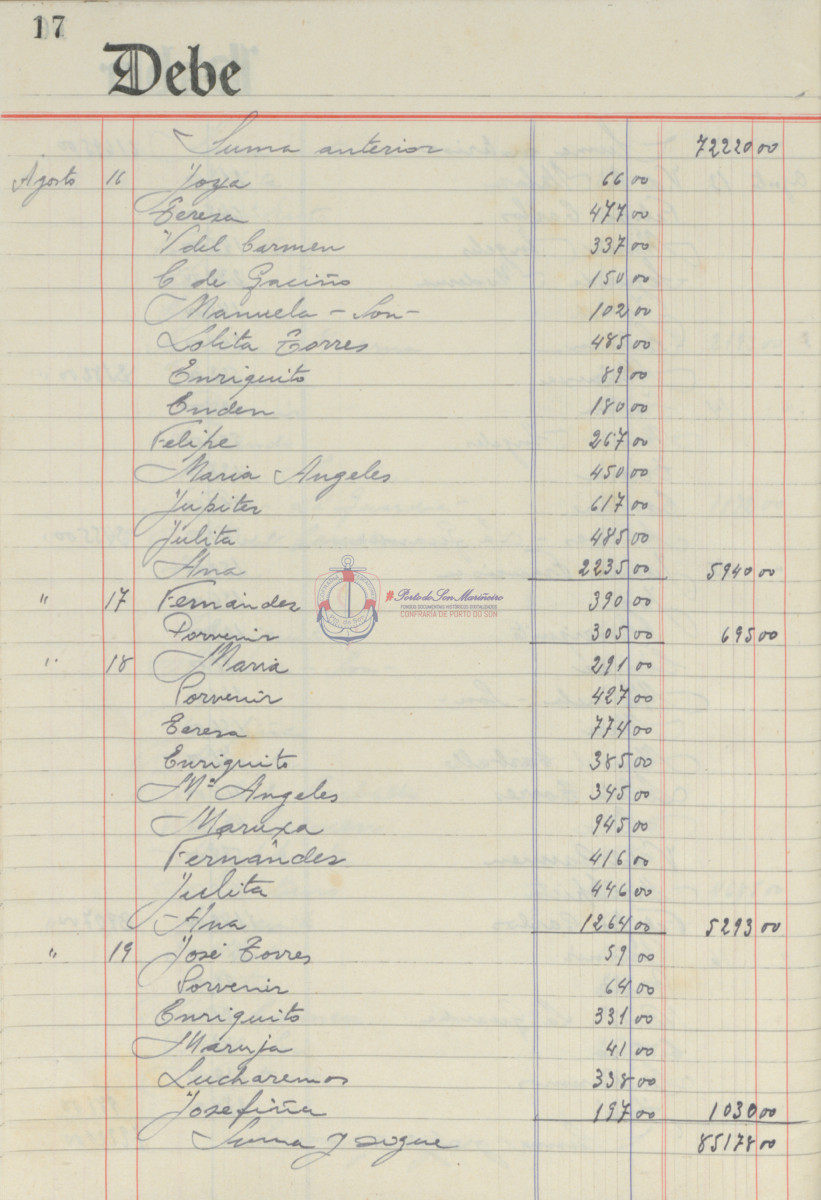 17
Debe
Suma anterior 72220 00
Agosto 16 Joya 66 00
Teresa 477 00
V del Carmen 337 00
C de Gaciño 150 00
Manuela - Son - 102 00
Lolita Torres 485 00
Enriquito 89 00
Enden 180 00
Felipe 267 00
Maria Angeles 450 00
Júpiter 617 00
Julita 485 00
Ana 2235 00 5940 00
" 17 Fernández 390 00
Porvenir 305 00 695 00
" 18 Maria 291 00
Porvenir 427 00
Teresa 774 00
Enriquito 385 00
Mª Angeles 345 00
Maruxa 945 00
Fernández 416 00
Julita 446 00
Ana 1264 00 5293 00
" 19 José Torres 59 00
Porvenir 64 00
Enriquito 331 00
Maruja 41 00
Lucharemos 338 00
Josefiña 197 00 1030 00
Suma y sigue 85178 00
#Porto do Son Mariñeiro
FONDOS DOCUMENTAIS HISTÓRICOS DIXITALIZADOS
CONFRARÍA DE PORTO DO SON